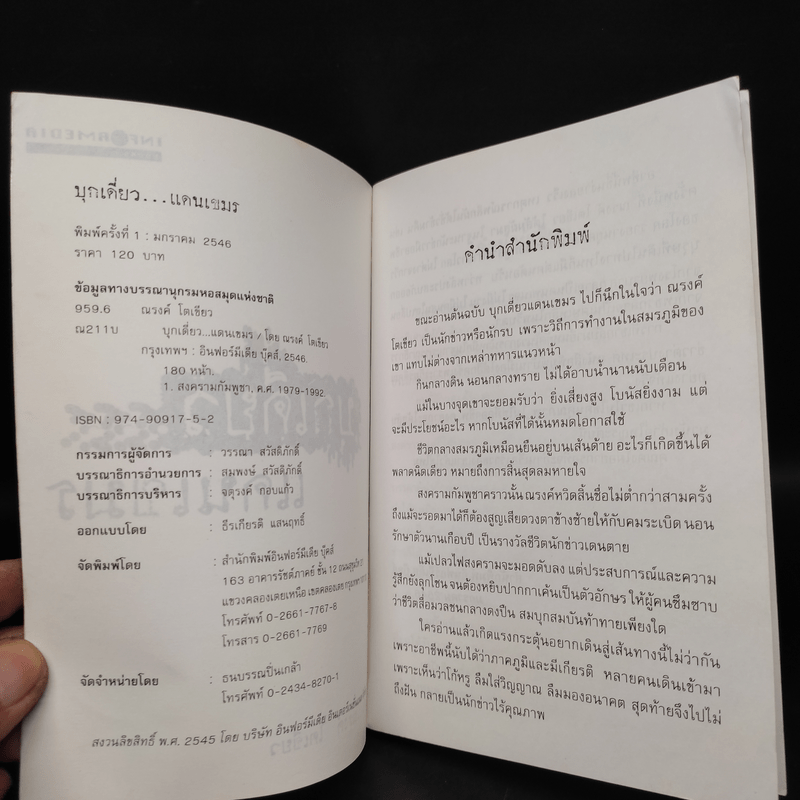 บุกเดี่ยว...แดนเขมร
พิมพ์ครั้งที่ 1 : มกราคม 2546
ราคา 120 บาท
ข้อมูลทางบรรณานุกรมหอสมุดแห่งชาติ
959.6 ณรงค์ โตเขียว
ณ211บ บุกเดี่ยว...แดนเขมร / โดย ณรงค์ โตเขียว
กรุงเทพฯ : อินฟอร์มีเดีย บุ๊คส์, 2546.
180 หน้า.
1. สงครามกัมพูชา, ค.ศ. 1979-1992.
ISBN : 974-90917-5-2
กรรมการผู้จัดการ : วรรณา สวัสดิภักดิ์
บรรณาธิการอำนวยการ : สมพงษ์ สวัสดิภักดิ์
บรรณาธิการบริหาร : จตุรงค์ กอบแก้ว
ออกแบบโดย : ธีรเกียรติ แสนฤทธิ์
จัดพิมพ์โดย : สำนักพิมพ์อินฟอร์มีเดีย บุ๊คส์
163 อาคารรัชต์ภาคย์ ชั้น 12 ถนนสุขุมวิท
แขวงคลองเตยเหนือ เขตคลองเตย กรุงเทพฯ
โทรศัพท์ 0-2661-7767-8
โทรสาร 0-2661-7769
จัดจำหน่ายโดย : ธนบรรณปิ่นเกล้า
โทรศัพท์ 0-2434-8270-1
สงวนลิขสิทธิ์ พ.ศ. 2545 โดย บริษัท อินฟอร์มีเดีย
คำนำสำนักพิมพ์
ขณะอ่านต้นฉบับ บุกเดี่ยวแดนเขมร ไปก็นึกในใจว่า ณรงค์
โตเขียว เป็นนักข่าวหรือนักรบ เพราะวิถีการทำงานในสมรภูมิของ
เขา แทบไม่ต่างจากเหล่าทหารแนวหน้า
กินกลางดิน นอนกลางทราย ไม่ได้อาบน้ำนานนับเดือน
แม้ในบางจุดเขาจะยอมรับว่า ยิ่งเสี่ยงสูง โบนัสยิ่งงาม แต่
จะมีประโยชน์อะไร หากโบนัสที่ได้นั้นหมดโอกาสใช้
ชีวิตกลางสมรภูมิเหมือนยืนอยู่บนเส้นด้าย อะไรก็เกิดขึ้นได้
พลาดนิดเดียว หมายถึงการสิ้นสุดลมหายใจ
สงครามกัมพูชาคราวนั้น ณรงค์หวิดสิ้นชื่อไม่ต่ำกว่าสามครั้ง
ถึงแม้จะรอดมาได้ก็ต้องสูญเสียดวงตาข้างซ้ายให้กับคมระเบิด นอน
รักษาตัวนานเกือบปี เป็นรางวัลชีวิตนักข่าวเดนตาย
แม้เปลวไฟสงครามจะมอดดับลง แต่ประสบการณ์และความ
รู้สึกยังลุกโชน จนต้องหยิบปากกาเค้นเป็นตัวอักษร ให้ผู้คนซึมซาบ
ว่าชีวิตสื่อมวลชนกลางดงปืน สมบุกสมบันท้าทายเพียงใด
ใครอ่านแล้วเกิดแรงกระตุ้นอยากเดินสู่เส้นทางนี้ไม่ว่ากัน
เพราะอาชีพนี้นับได้ว่าภาคภูมิและมีเกียรติ หลายคนเดินเข้ามา
เพราะเห็นว่าโก้หรู ลืมใส่วิญญาณ ลืมมองอนาคต สุดท้ายจึงไปไม่
ถึงฝัน กลายเป็นนักข่าวไร้คุณภาพ